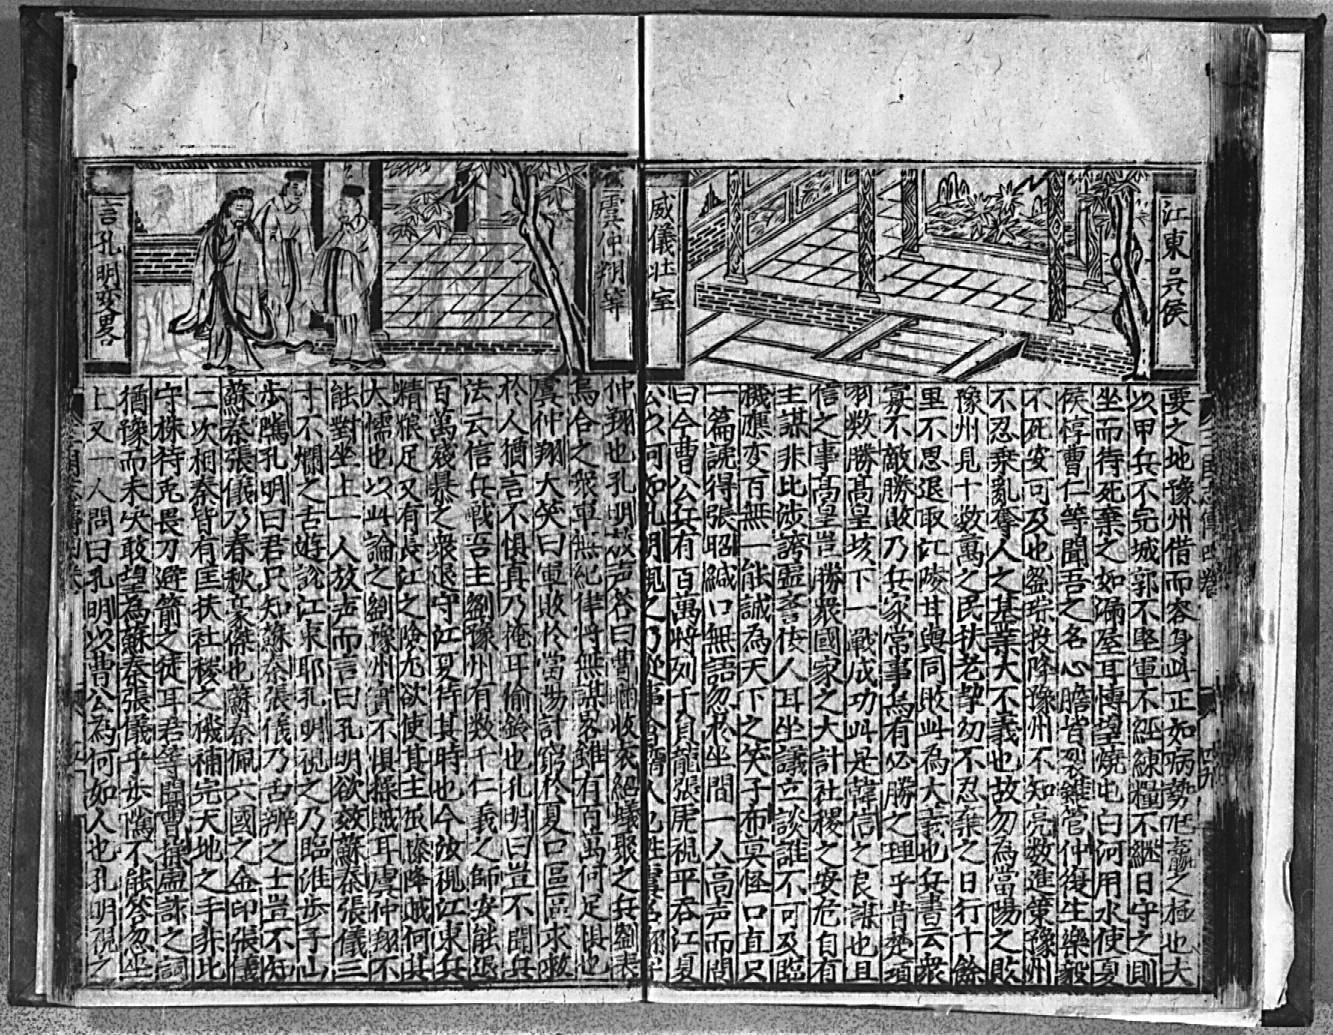 江東吳侯
威儀壯
要之地豫州借而容身此正如病勢尪羸之極也大
以甲兵不完城郭不堅軍不經練糧不継日守之則
坐而待死棄之如漏屋耳愽望燒屯白河用水使夏
侯惇曹仁等聞吾之名心膽皆裂雖管仲復生樂毅
不死安可及也劉琮投降豫州不知亮数進策豫州
不忍乗亂奪人之基業大不義也故勿為當陽之敗
豫州見十数萬之民扶老挈幼不忍棄之日行十餘
里不思退取江陵甘與同敗此為大義也兵書云衆
寡不敵勝敗乃兵家常事焉有必勝之理乎昔楚項
羽数勝髙皇垓下一戰成功此是韓信之良謀也且
信之事高皇豈勝衆國家之大計社稷之安危自有
主謀非比誇 人耳坐議立談誰不可及臨
機應变百無一能誠為天下之笑子布莫怪口直只
一篇說得張昭緘口無語忽扵坐間一人高声而問
曰今曹公兵有百萬将列千員龍張虎視平吞江夏
公以何如孔明視之乃
言孔明 畧
虞仲翔等
仲翔也孔明 声答曰曹 收袁紹蟻聚之兵劉表
烏合之衆軍無紀律将無謀畧雖有百萬何足惧也
虞仲翔大笑曰軍敗扵當陽計窮扵夏口區區求救
於人猶言不惧真乃掩耳偷鈴也孔明曰豈不聞兵
法云信兵戰 吾主劉豫州有数千仁義之師安能退
百萬殘暴之衆退守江夏待其時也今汝視江東兵
精粮足又有長江之險尤欲使其主 膝降賊何其
大懦也以此論之劉豫州實不惧操賊耳虞仲翔不
能對坐上一人放声而言曰孔明欲效蘇秦張儀三
寸不爛之舌遊說江東耶孔明視之乃臨淮步子山
步隲孔明曰君只知蘇秦張儀乃舌辨之士豈不知
蘇秦張儀乃春秋豪傑也蘇秦佩六國之金印張儀
二次相秦皆有匡扶社稷之機補完天地之手非比
守株待兎畏刀避箭之徒耳君等聞曹操虛詐之詞
猶豫而未决敢望為蘇秦張儀乎步隲不能答忽坐
上又一人問曰孔明以曹公為何如人也孔明視之